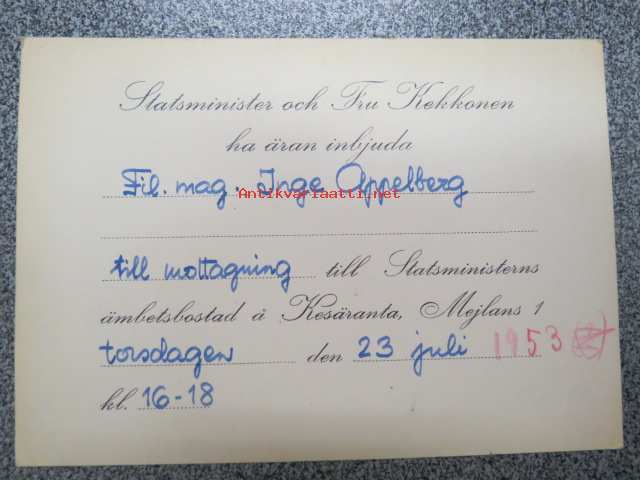 Statsminister och Fru Kekkonen
ha äran inbjuda
Fil. mag. Inge Appelberg
Antikvariaatti.net
till mottagning till Statsministerns
ämbetsbostad å Kesäranta, Mejlans 1
torsdagen den 23 juli 1953
kl. 16-18